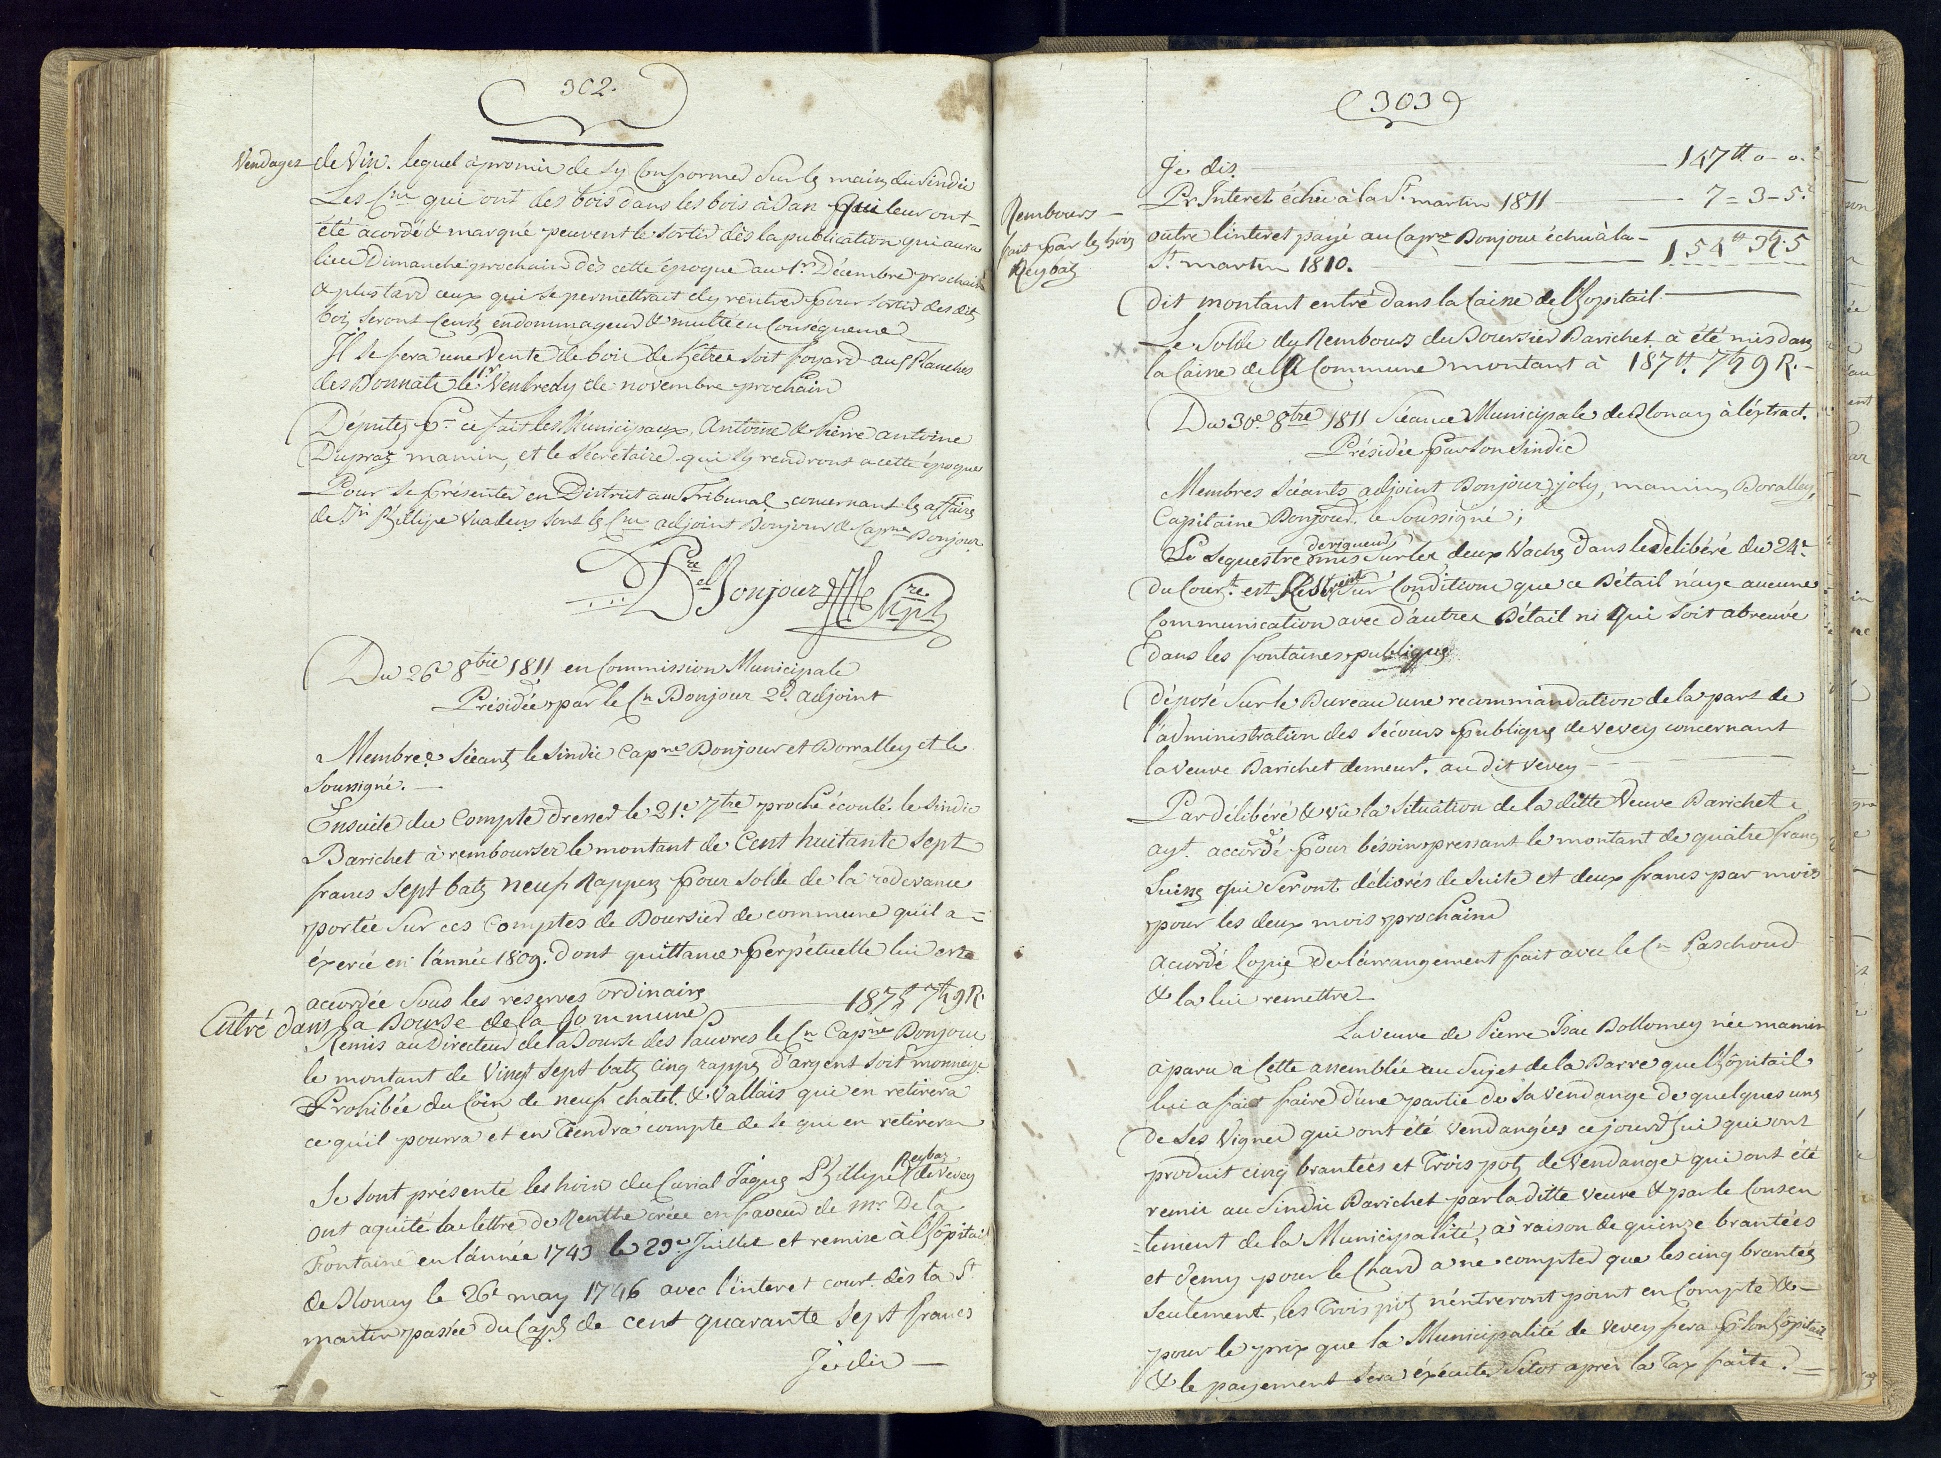 302.
Vendages de Vin. lequel à promis de sy Conformer Sur les mains du Sindic
Les Cns qui ont des bois dans les bois à Jan qui leur ont
été acordé & marqué peuvent le Sortir dès la publication qui aura
lieu Dimanche prochain dès cette époque au 1er Décembre prochain
& plus tard ceux qui se permettrait d'y rentrer pour Sortir des dits
bois Seront Censé endommageur & multé en Conséquence
Il se fera une Vente de bois de hetre soit foyard aux Planches
des Donnats le 1er Vendredy de novembre prochain
Députez pr ce fait les Municipaux, Antoine & Pierre antoine
Dupraz mamin, et le Sécretaire qui sy rendront a cette époque
Pour Se présenter en District au Tribunal concernant les affaires
de Jn Phillipe Vuadens sont les Cns adjoint Bonjour & Capne Bonjour
Bonjour
Du 26e 8bre 1811 en Commission Municipale
Présidée par le Cn Bonjour 2d. adjoint
Membres Séeants le Sindic Capne Bonjour et Dorralley et le
Soussigné.
Ensuite du Compte dressé le 21e 7bre proche écoulé. le Sindic
Barichet à rembourser le montant de Cent huitante Sept
francs Sept batz neuf Rappes pour Solde de la redevance
portée Sur ces Comptes de Boursier de commune qu'il a =
éxercé en l'année 1809. dont quittance perpétuelle lui est
accordée Sous les reserves ordinaires 187 7 9 R.
Entré dans la Bourse de la Commune
Remis au Directeur de la Bourse des Pauvres le Cn Capne Bonjour
le montant de Vingt Sept batz cinq rappes d'argent Soit monneye
Prohibée du Coin de neuf chatel. & Vallais qui en retirera
ce qu'il pourra et en Tiendra compte de Se qui en retirera
Se sont présenté les hoirs du Curial Jaques Phillipe Reybaz de Vevey
ont aquité la lettre de Renthe créée en faveur de mr. De la
Fontaine en l'année 1743 le 29e Juillet et remise à l'hôpital
de Blonay le 26e may 1746 avec l'interet court. dès la St.
martin passée du Capl. de cent quarante Sept francs
Je dis —
(303)
Je dis. 147 tt 0 - 0.
Pr Interet échu à la St. martin 1811 7 = 3 - 5.
Rembours
fait par les hoirs
Reybaz
outre l'interet payé au Capne Bonjour échu à la 154 tt 3 . 5
St. martin 1810.
dit montant entré dans la Caisse de l'hopitail.
Le Solde du Rembours du Boursier Barichet à été mis dans
la Caisse de la Commune montant à 187 tt. 7 9 R.
Du 30e 8bre 1811 Séance Municipale de Blonay à l'éxtract.
Présidée par Son Sindic
Membres Séeants, adjoint Bonjour, joly, mamin, Doralley,
Capitaine Bonjour, le Soussigné;
Le Sequestre de rigueur mis Sur les deux Vaches dans le délibéré du 24e
du Court. est Restreint Sur Condition que ce Bétail n'aye aucune
Communication avec d'autres Bétail ni Qui Soit abreuvé
dans les fontaines publiques
déposé Sur le Bureau une recommandation de la part de
l'administration des Sécours publiques de vevey concernant
la Veuve Barichet demeurt. au dit Vevey
Par délibéré & vu la Situation de la ditte Veuve Barichet
ayt. accordé pour bésoin pressant le montant de quatre francs
Suisses qui Seront délivrés de Suite et deux francs par mois
pour les deux mois prochains
acordé Copie de l'arrangement fait avec le Cn Paschoud
& la lui remettre
La veuve de Pierre Isac Bollomey née mamin
à paru à Cette assemblée au Sujet de la Barre que l'hôpitail
lui a fait faire d'une partie de sa vendange de quelques unes
de Ses Vignes qui ont été vendangées ce jourd'hui qui ont
produit cinq brantées et Trois pots de Vendange qui ont été
remis au Sindic Barichet par la ditte veuve & par le Consen
=tement de la Municipalité, à raison de quinze brantées
et demy pour le Chard à ne compter que les cinq brantées
Seulement, les Trois pots n'éntreront point en Compte &
pour le prix que la Municipalité de Vevey fera pr. son hôpitail
& le payement Sera éxécuté Sitot après la Tax faite.